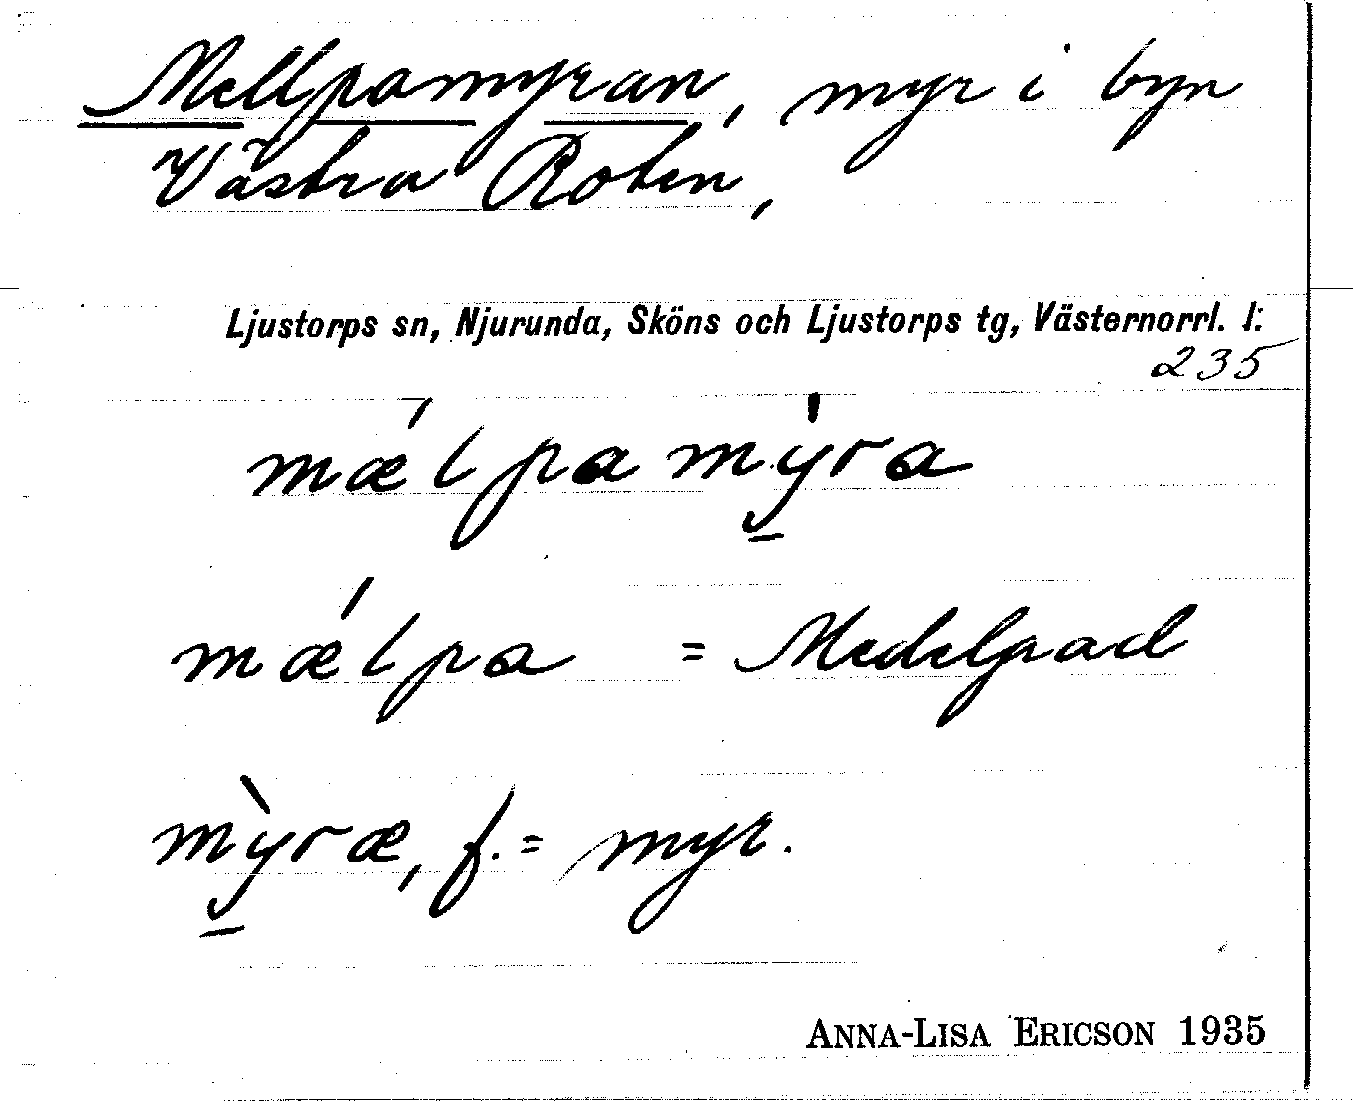 Mellpamyran, myr i byn
Västra Roten,
Ljustorps sn, Njurunda, Sköns och Ljustorps tg, Västernorrl. l:
235
mǽlpamỳra
mǽlpa = Medelpad
mỳræ, f. = myr.
ANNA-LISA ERICSON 1935